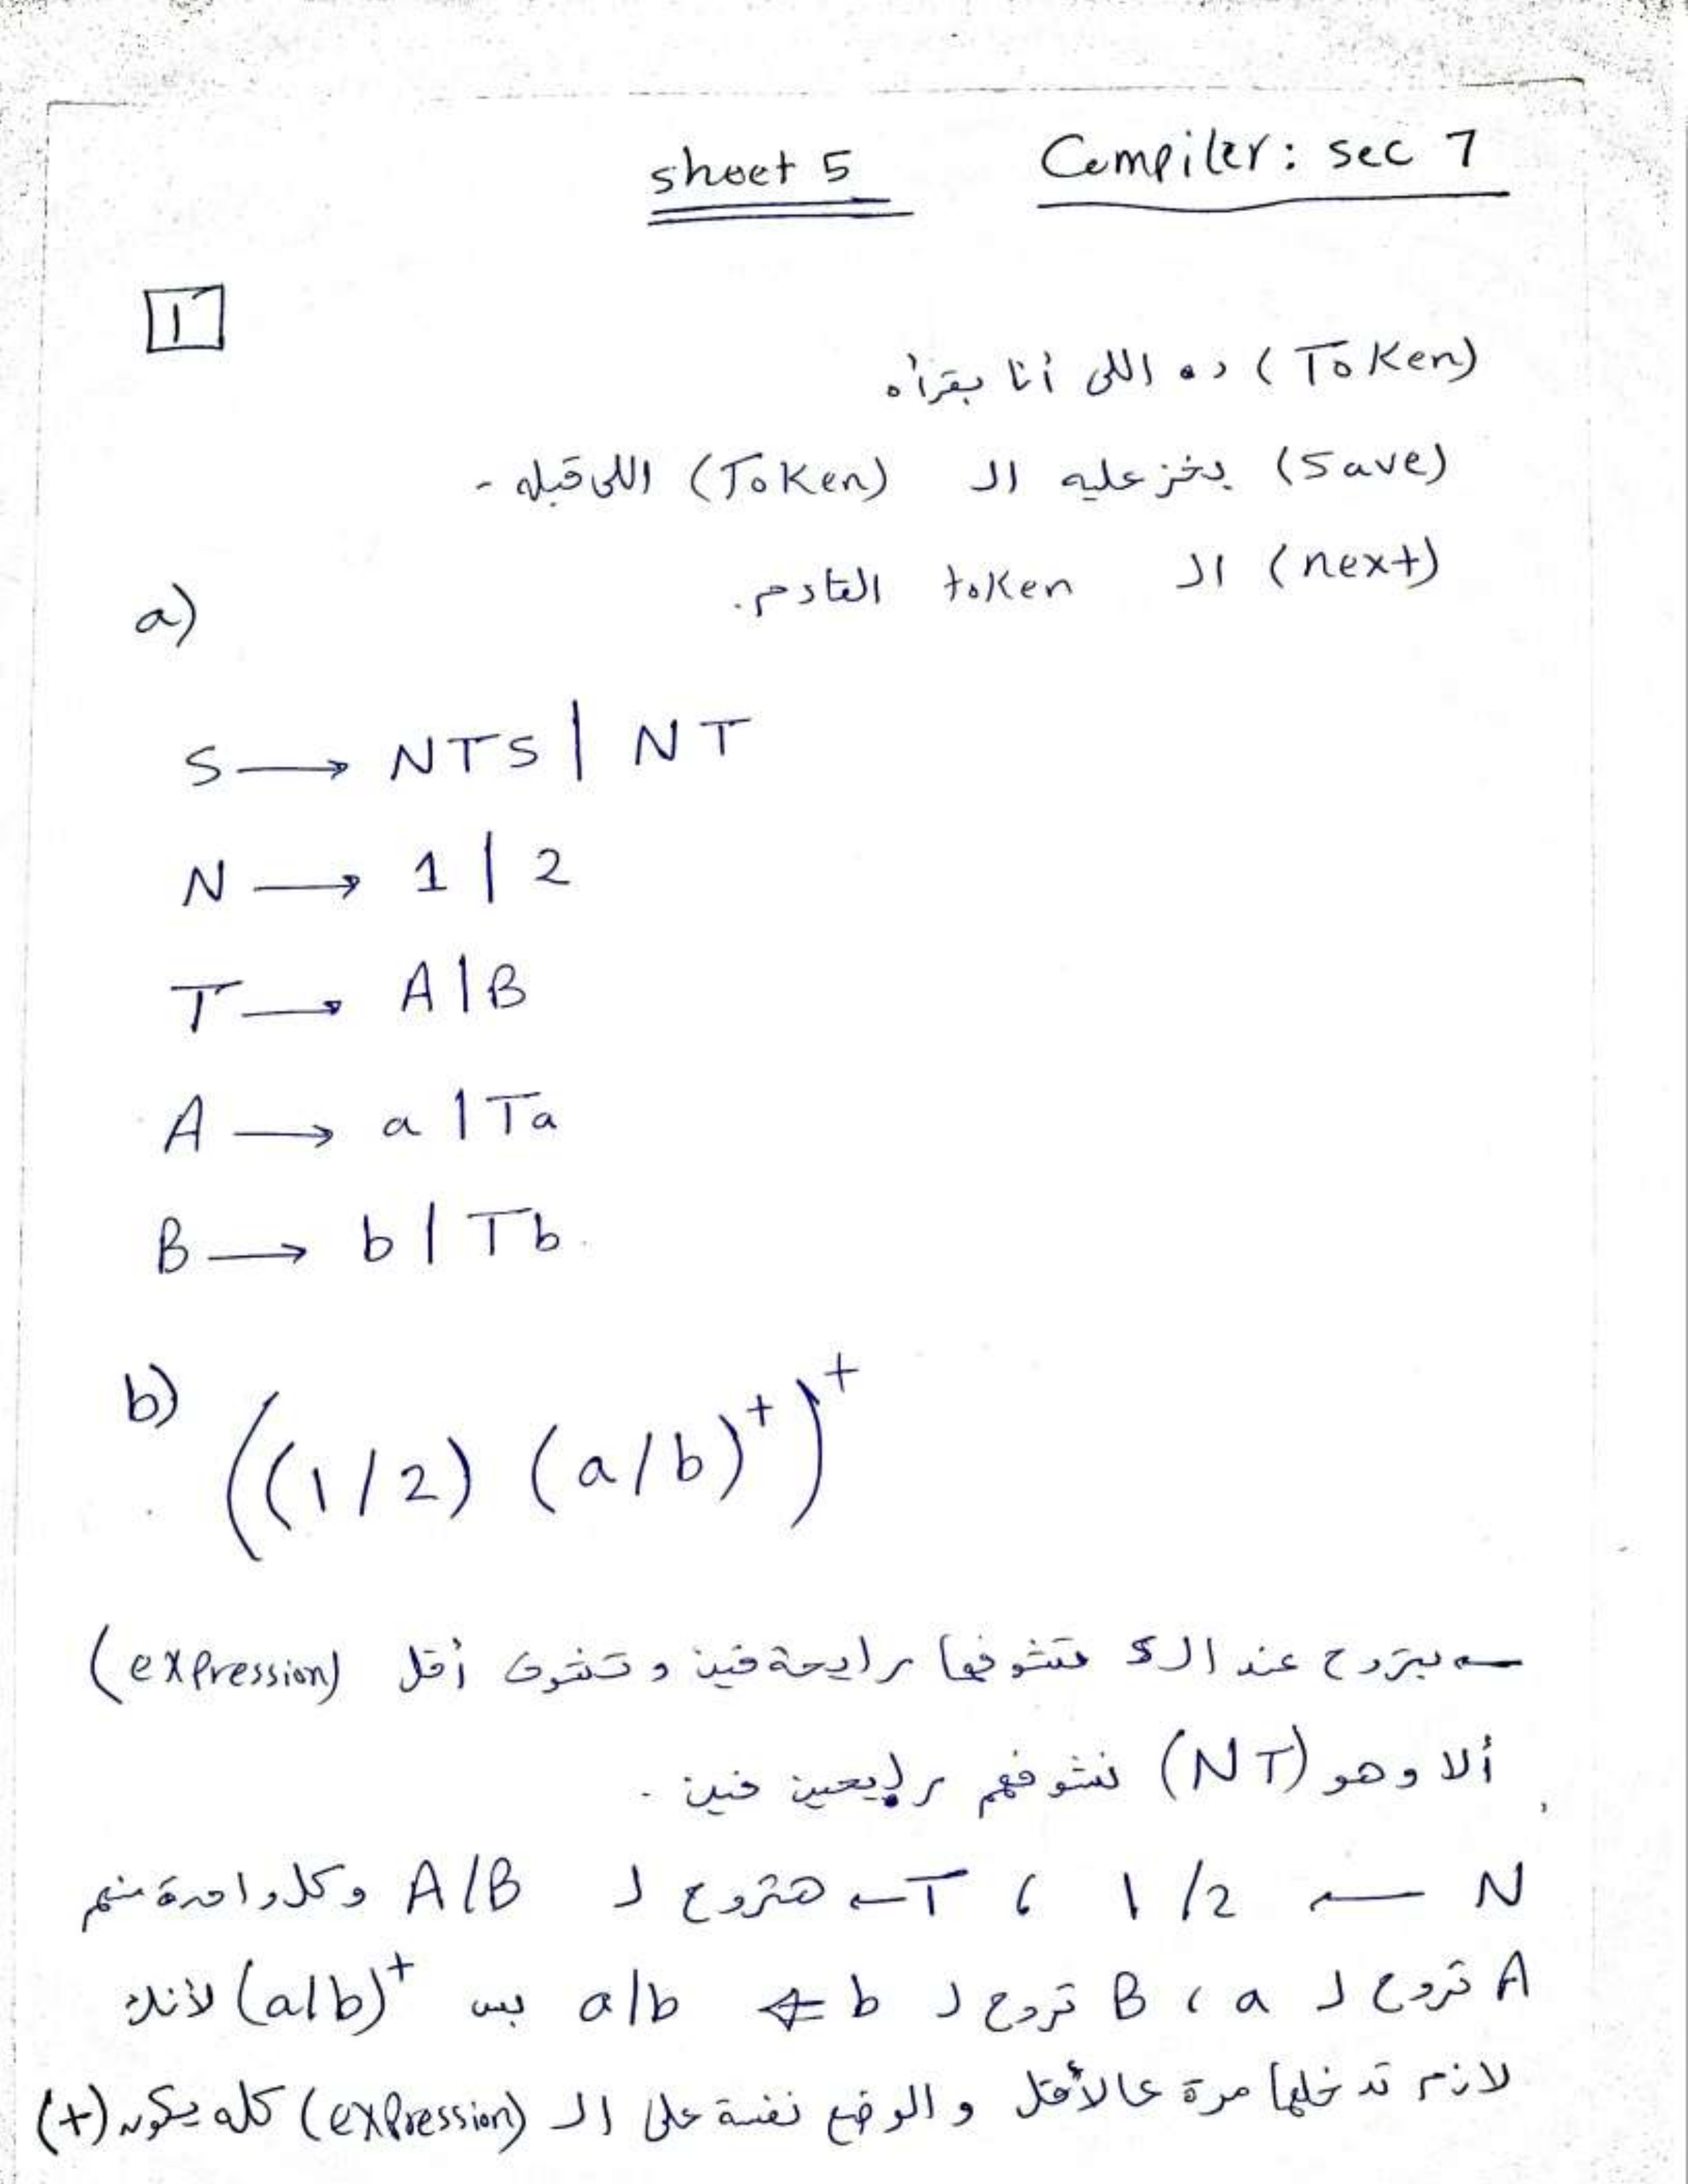 sheet 5 Compiler: sec 7
1
(Token) ده اللى أنا بقرأه
(Save) بخزعليه الـ (Token) اللى قبله -
(next) الـ token القادم.
a)
S → NTS | NT
N → 1 | 2
T → A | B
A → a | Ta
B → b | Tb
b) ((1/2) (a/b)⁺)⁺
بتروح عند الـ S تشوفها رايحة فين و تشوف أقل (expression)
ألا وهو (NT) نشوفهم رايحين فين .
N ← 1/2 ، T ← هتروح لـ A/B وكل واحدة منهم
A تروح لـ a ، B تروح لـ b ⇐ a/b بس (a/b)⁺ لأنك
لازم تدخلها مرة عالأقل و الوضع نفسة على الـ (expression) كله يكون (+)